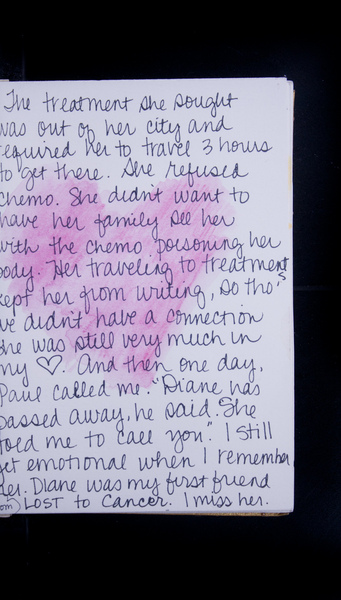 The treatment she sought
was out of her city and
required her to travel 3 hours
to get there. She refused
chemo. She didn't want to
have her family see her
with the chemo poisoning her
body. Her traveling to treatments
kept her from writing, so tho'
we didn't have a connection
she was still very much in
my ♡. And then one day,
Paul called me. "Diane has
passed away, he said. She
told me to call you". I still
get emotional when I remember
her. Diane was my first friend
LOST to Cancer. I miss her.